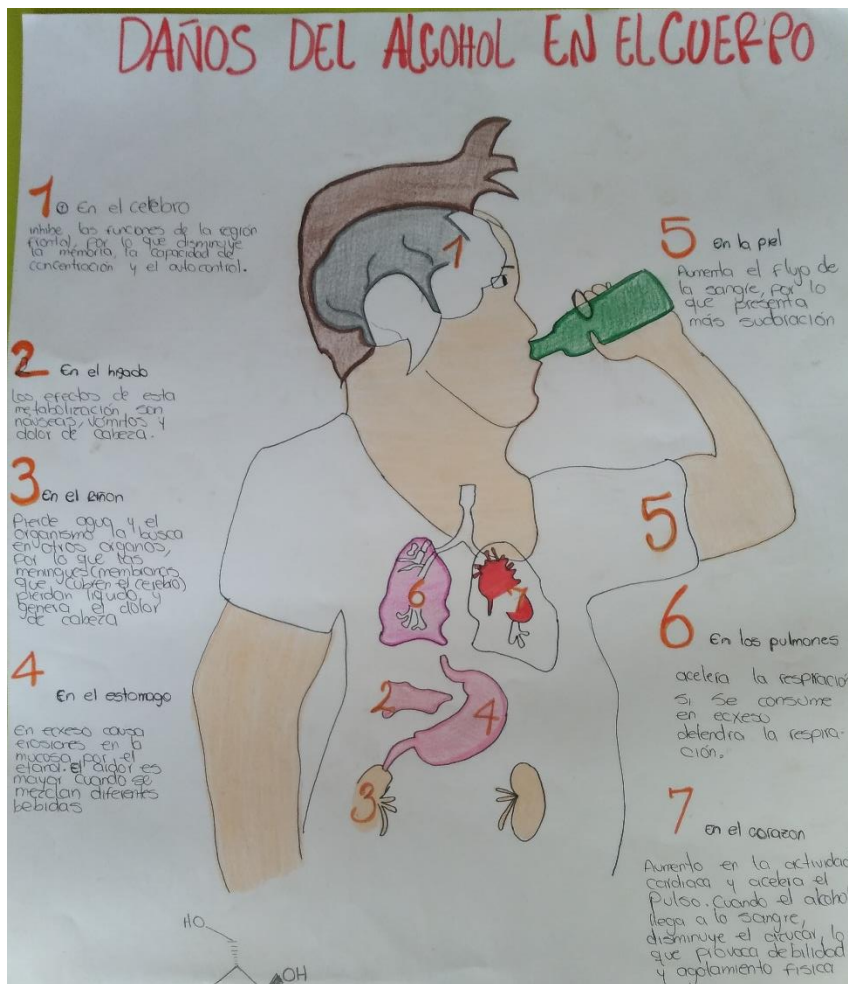 DAÑOS DEL ALCOHOL EN EL CUERPO
1 ① En el celebro
inhibe las funciones de la region
frontal, por lo que disminuye
la memoria, la capacidad de
concentración y el autocontrol.
2 En el higado
Los efectos de esta
metabolización son
náuseas, vómitos y
dolor de cabeza.
3 En el riñon
Pierde agua y el
organismo la busca
en otros organos,
por lo que las
meninges (membranas
que cubren el cerebro)
pierdan liquido, y
genera el dolor
de cabeza
4
En el estomago
En ecxeso causa
erosiones en la
mucosa, por el
etanol. El ardor es
mayor cuando se
mezclan diferentes
bebidas
5 En la piel
Aumenta el flujo de
la sangre, por lo
que presenta
más sudoración
6 En los pulmones
acelera la respiració
si se consume
en ecxeso
detendra la respira-
ción.
7 en el corazon
Aumento en la actividad
cardiaca y acelera el
Pulso. Cuando el alcohol
llega a la sangre,
disminuye el azucar, lo
que provoca debilidad
y agotamiento fisica
1
5
6
7
2
4
3
HO
OH